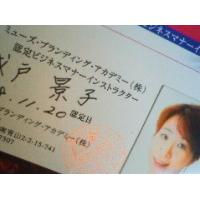 ビジネスマナーイン
ミューズ・ブランディング・アカデミー(株)
認定ビジネスマナーインストラクター
戸 景子
11.20 認定日
ブランディング・アカデミー(株)
青山2-2-15-741